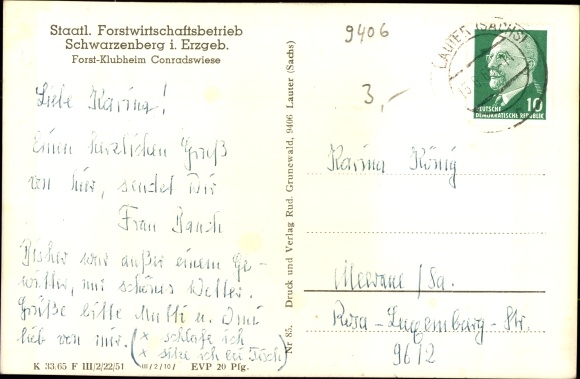 Staatl. Forstwirtschaftsbetrieb
Schwarzenberg i. Erzgeb.
Forst-Klubheim Conradswiese
Liebe Karina!
Einen herzlichen Gruß
von hier, sendet Dir
Frau
Bisher war außer einem Ge-
witter, nur schönes Wetter.
Grüße bitte Mutti u. Omi
lieb von mir. (x schlafe ich
x sitze ich bei Tisch)
K 33/65 F III/2/22/51 III/2/10/ EVP 20 Pfg.
Nr 85. Druck und Verlag Rud. Grunewald, 9406 Lauter (Sachs)
9406
3,-
LAUTER (SACHS)
10
DEUTSCHE
DEMOKRATISCHE REPUBLIK
Karina König
Meerane/Sa.
Rosa-Luxemburg-Str.
96/2